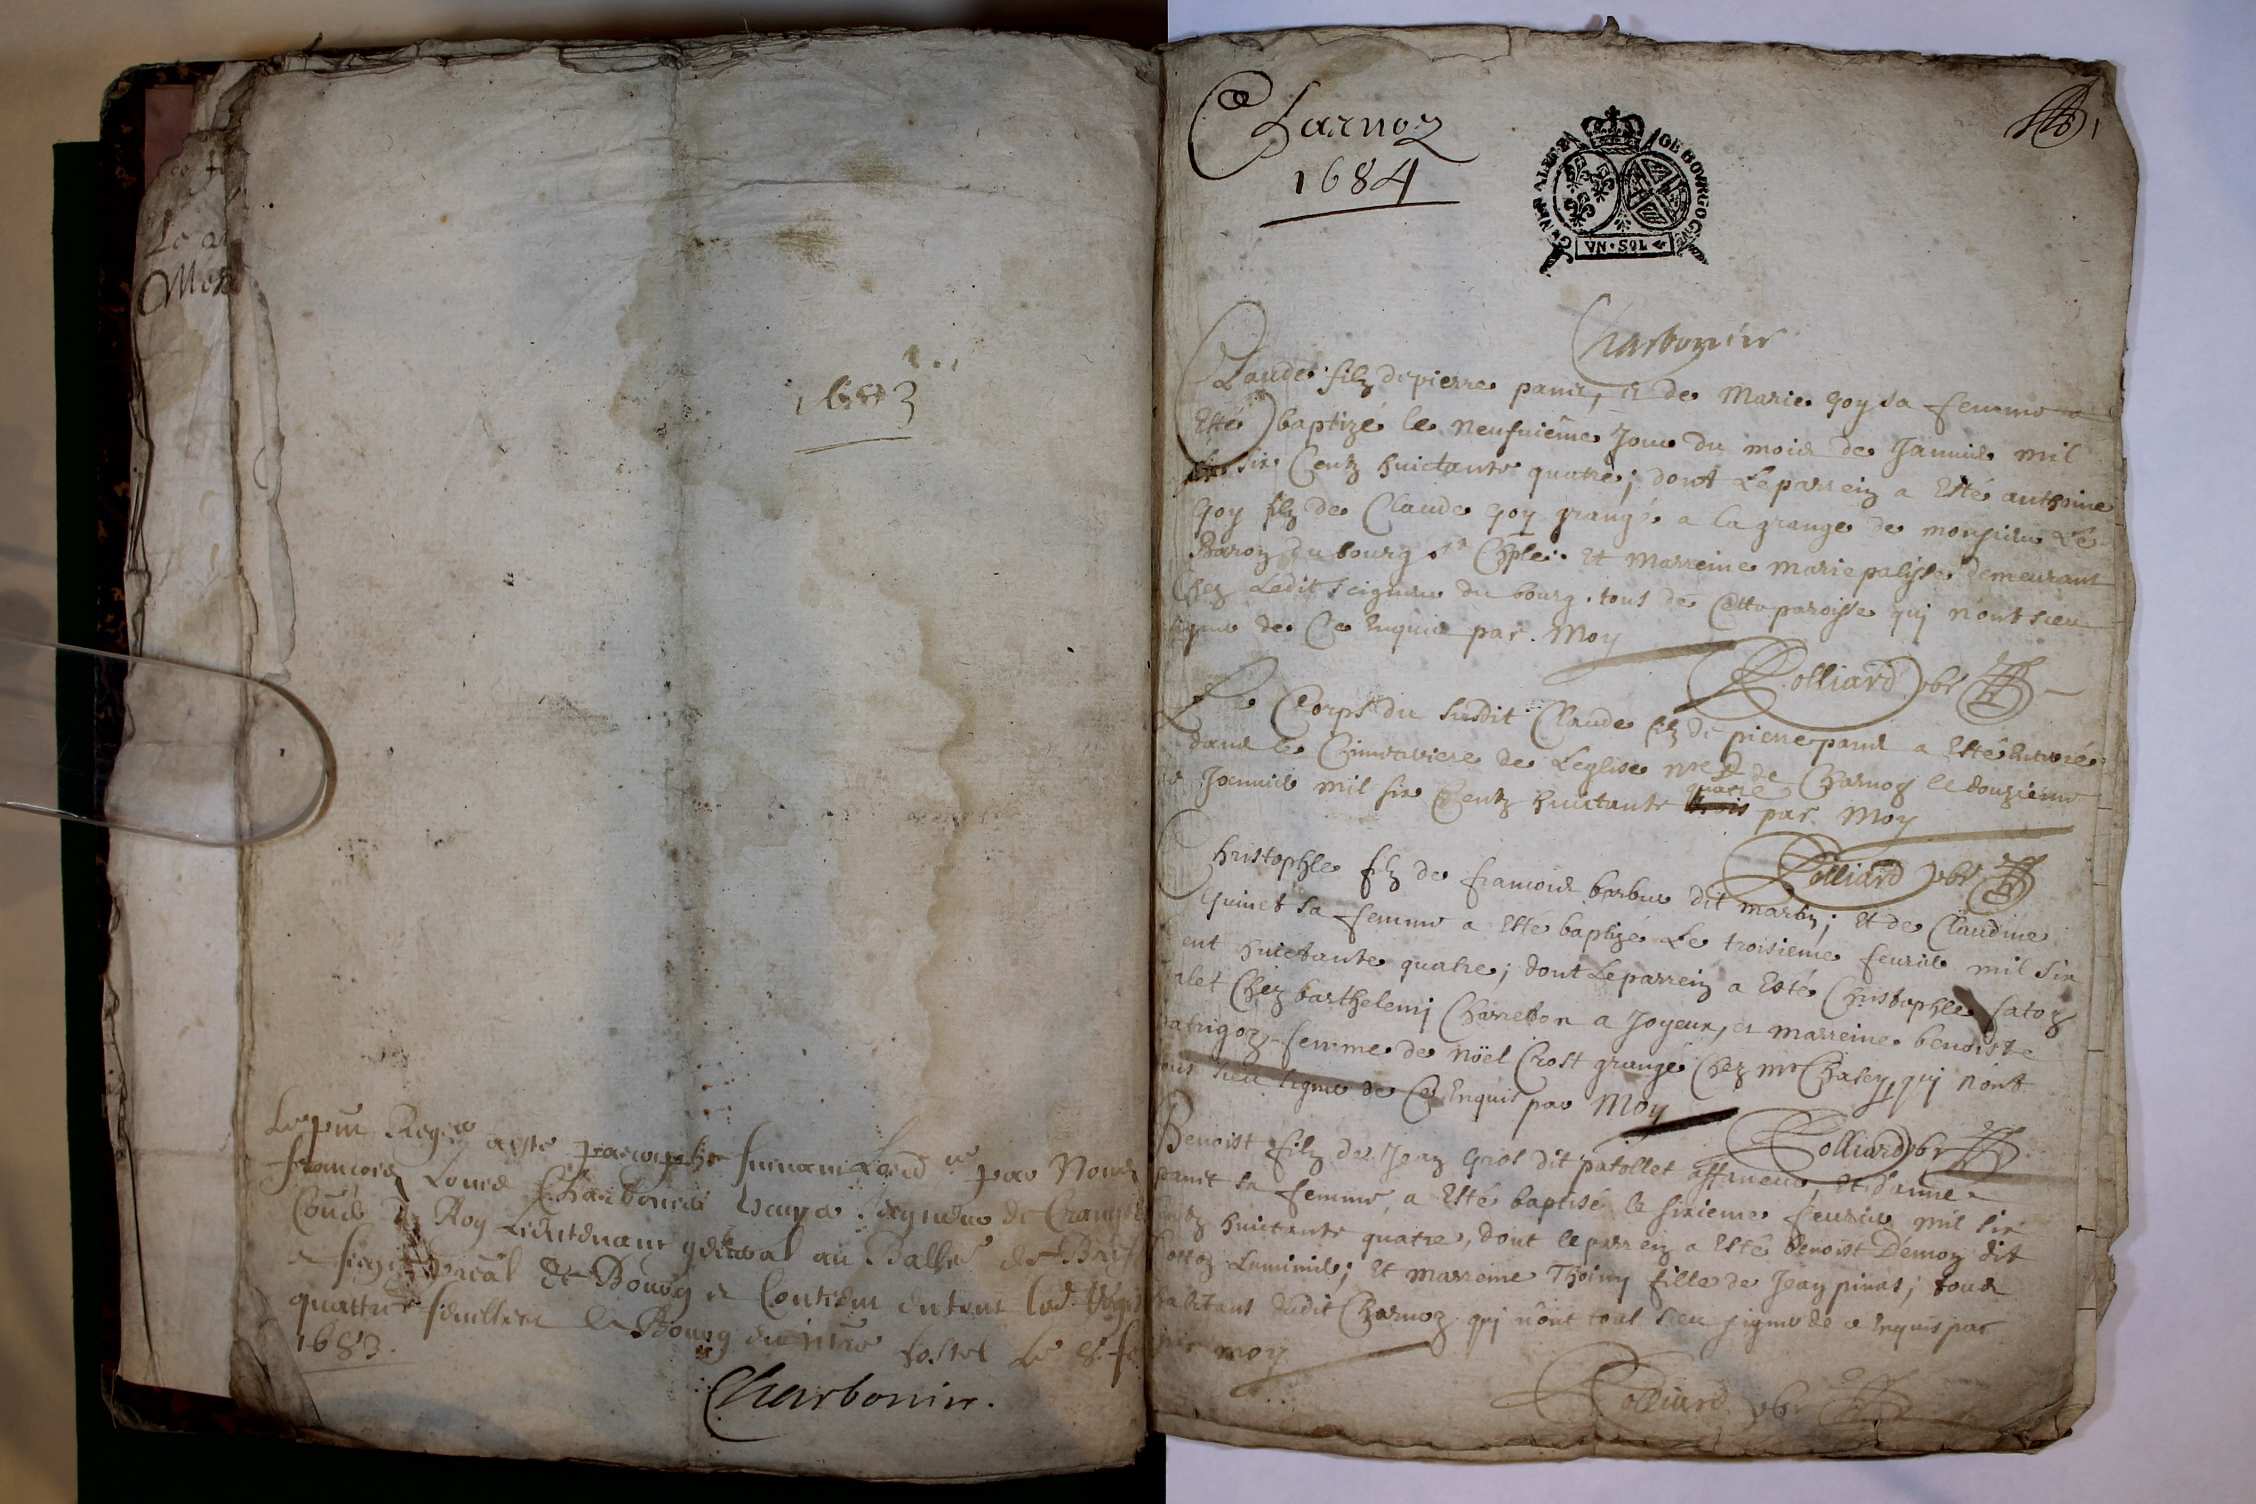 1683
Le pnt Regre a esté paraphé suivant l'ord.ce par Nous
françois Louis Charbonnier Seigneur de Crangeac
Conser du Roy Lieutenant general au Balle de
siege de Bourg et Contient en tout
quattre feuillets A Bourg en nre hostel Le
1683.
Charbonier.
Charnoz
1684
1
GENERALITE DE BOVRGOGNE
VN • SOL
Charbonier
Claude filz de pierre panit, et de Marie Goy sa femme a
Esté baptizé le neufuieme Jour du mois de Januier mil
six Centz huictante quatre; dont Le parrein a Esté anthoine
Goy filz de Claude Goy grangé a la grange de monsieur Le
Baron du bourg Ste Et Marreine marie palisse demeurant
Chez Ledit seigneur du bourg. tous de Cette paroisse qui n'ont sceu
signer de Ce Enquis par. Moy
Polliard pbr
Le Corps du susdit Claude filz de pierre panit a Esté Enterré
dans le Cimetiere de L'eglise nre D de Charnoz le douzieme
Januier mil six Centz huictante trois quatre par Moy
Polliard pbr
Christophle filz de francois barbier dit martin; Et de Claudine
Guinet sa femme a Esté baptizé Le troisieme feurier mil six
Cent huictante quatre; dont Le parrein a Esté Christophle satoz
valet Chez barthelemy Charreton a Joyeux, et marreine benoiste
patrigoz femme de nöel Crost grangé Chez mr Chasey qui n'ont
sceu signer de Ce Enquis par Moy
Polliard pbr
Benoist filz de Jean Griot dit patollet affaneur, et d'anne
panit sa femme, a Esté baptisé le sixieme feurier mil six
Centz huictante quatre, dont le parrein a Esté benoist Démoz dit
Luminier; Et marreine Thoiny fille de Jean pinat; tous
habitans dudit Charnoz qui n'ont sceu signer de Ce Enquis par
moy
Polliard pbr